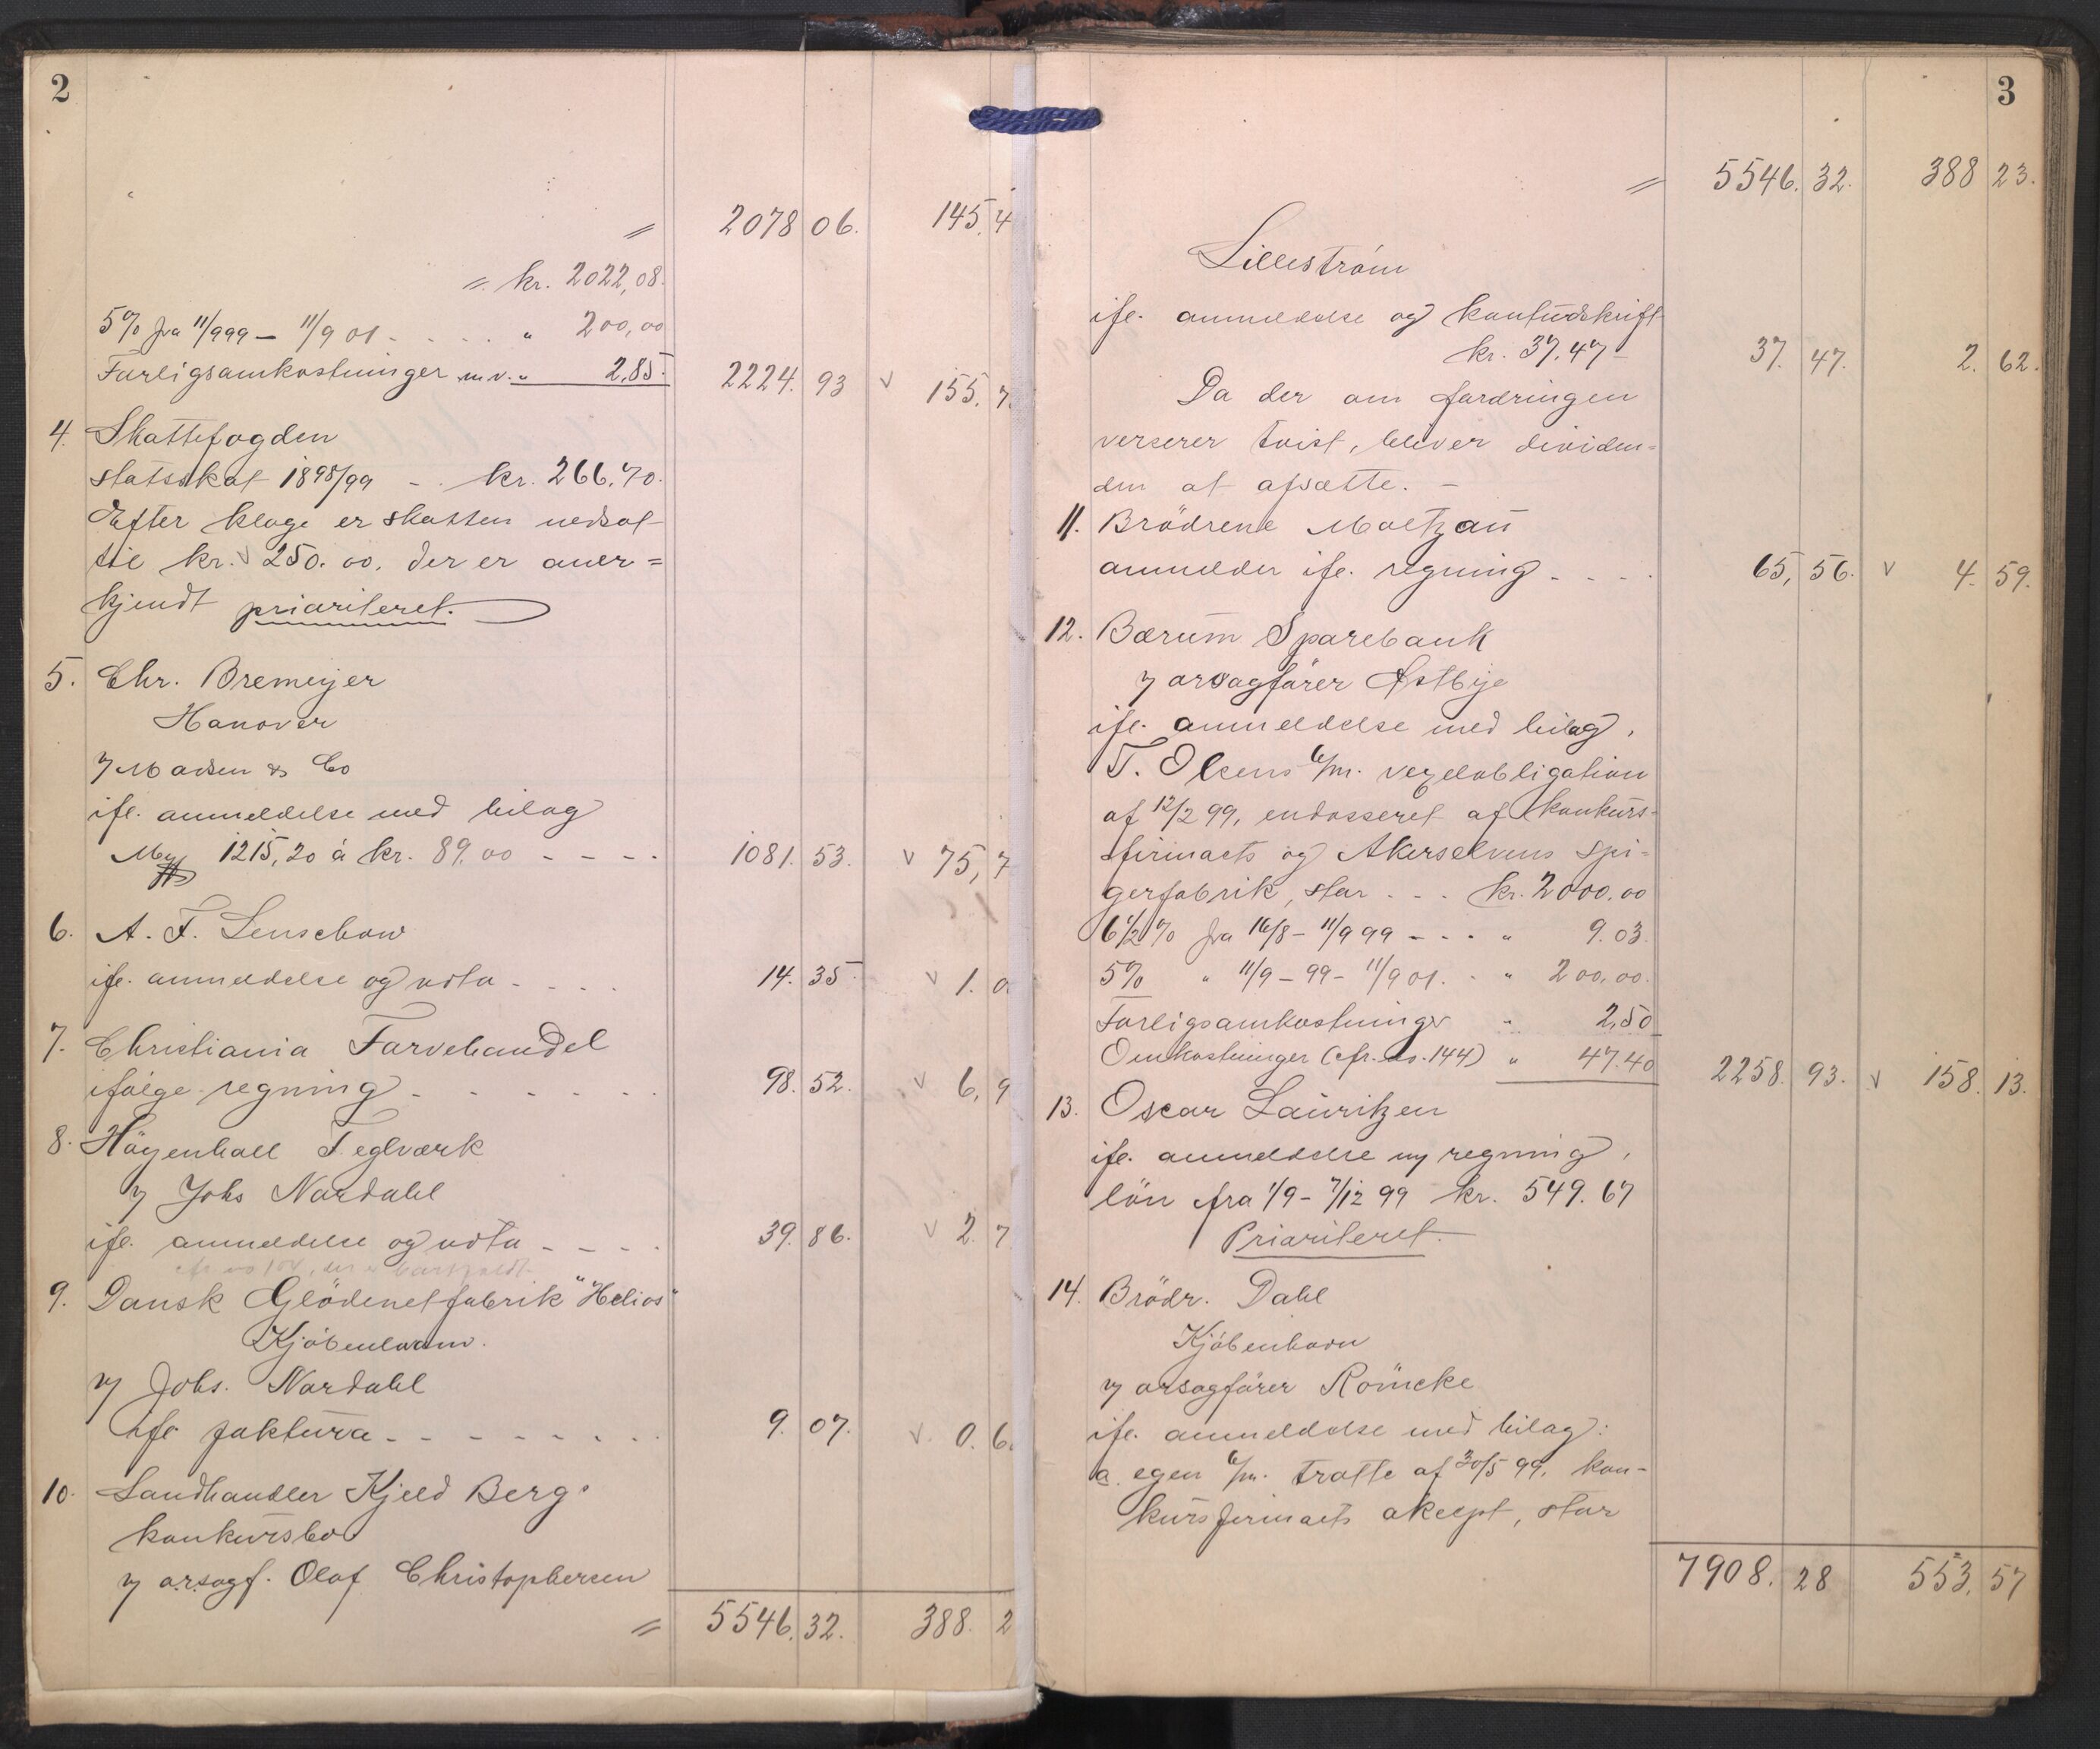 2
〃 2078 06. 145. 4
〃 kr. 2022,08.
5% fra 11/9 99 – 11/9 01 - - - - „ 200,00
Forligsomkostninger m.v. „ 2,85. 2224. 93 v 155. 7
4. Skattefogden
statsskat 1898/99 - kr. 266.70.
Efter klage er skatten nedsat
til kr. v 250.00. der er aner=
kjendt prioriteret.
5. Chr. Bremeyer
Hanover
v/ Madsen & Co
ifl. anmeldelse med bilag
1215,20 á kr. 89.00 - - - - 1081. 53. v 75, 7
6. A. F. Lenschow
ifl. anmeldelse og nota - - - - 14. 35. v 1. 0
7. Christiania Farvehandel
ifølge regning - - - - - - 98. 52. v 6, 9
8. Höyenhall Teglværk
v/ Johs Nordahl
ifl. anmeldelse og nota - - - - 39. 86. v 2. 7
9. Dansk Glödenetfabrik "Helios"
Kjöbenhavn.
v/ Johs. Nordahl
ifl. faktura - - - - - - - - 9. 07. v. 0. 6
10. Landhandler Kjeld Bergs
konkursbo
v/ orsagf. Olaf Christophersen
〃 5546. 32. 388. 2
3
〃 5546. 32. 388 23.
Lilleström
ifl. anmeldelse og kontudskrift
kr. 37.47 - 37. 47. 2. 62.
Da der om fordringen
verserer tvist, bliver dividen=
den at afsætte. -
11. Brödrene Moltzau
anmelder ifl. regning - - - - 65, 56. v 4. 59.
12. Bærum Sparebank
v/ orsagförer Östbye
ifl. anmeldelse med bilag,
T. Olsens 6/m. vexelobligation
af 12/2 99, endosseret af konkurs-
firmaets og Akerselvens spi-
gerfabrik, stor - - - kr. 2000.00
6 1/2% fra 16/8 – 11/9 99 - - - „ 9.03.
5% „ 11/9 – 99 – 11/9 01. - „ 200.00.
Forligsomkostninger „ 2,50
Omkostninger (cfr. no. 144) „ 47.40 2258. 93. v 158. 13.
13. Oscar Lauritzen
ifl. anmeldelse og regning,
lön fra 1/9 – 7/12 99 kr. 549.67
Prioriteret.
14. Brödr. Dahl
Kjöbenhavn
v/ orsagförer Römcke
ifl. anmeldelse med bilag:
a. egen 6/m. tratte af 30/5 99, kon-
kursfirmaets akcept, stor
7908. 28 553. 57